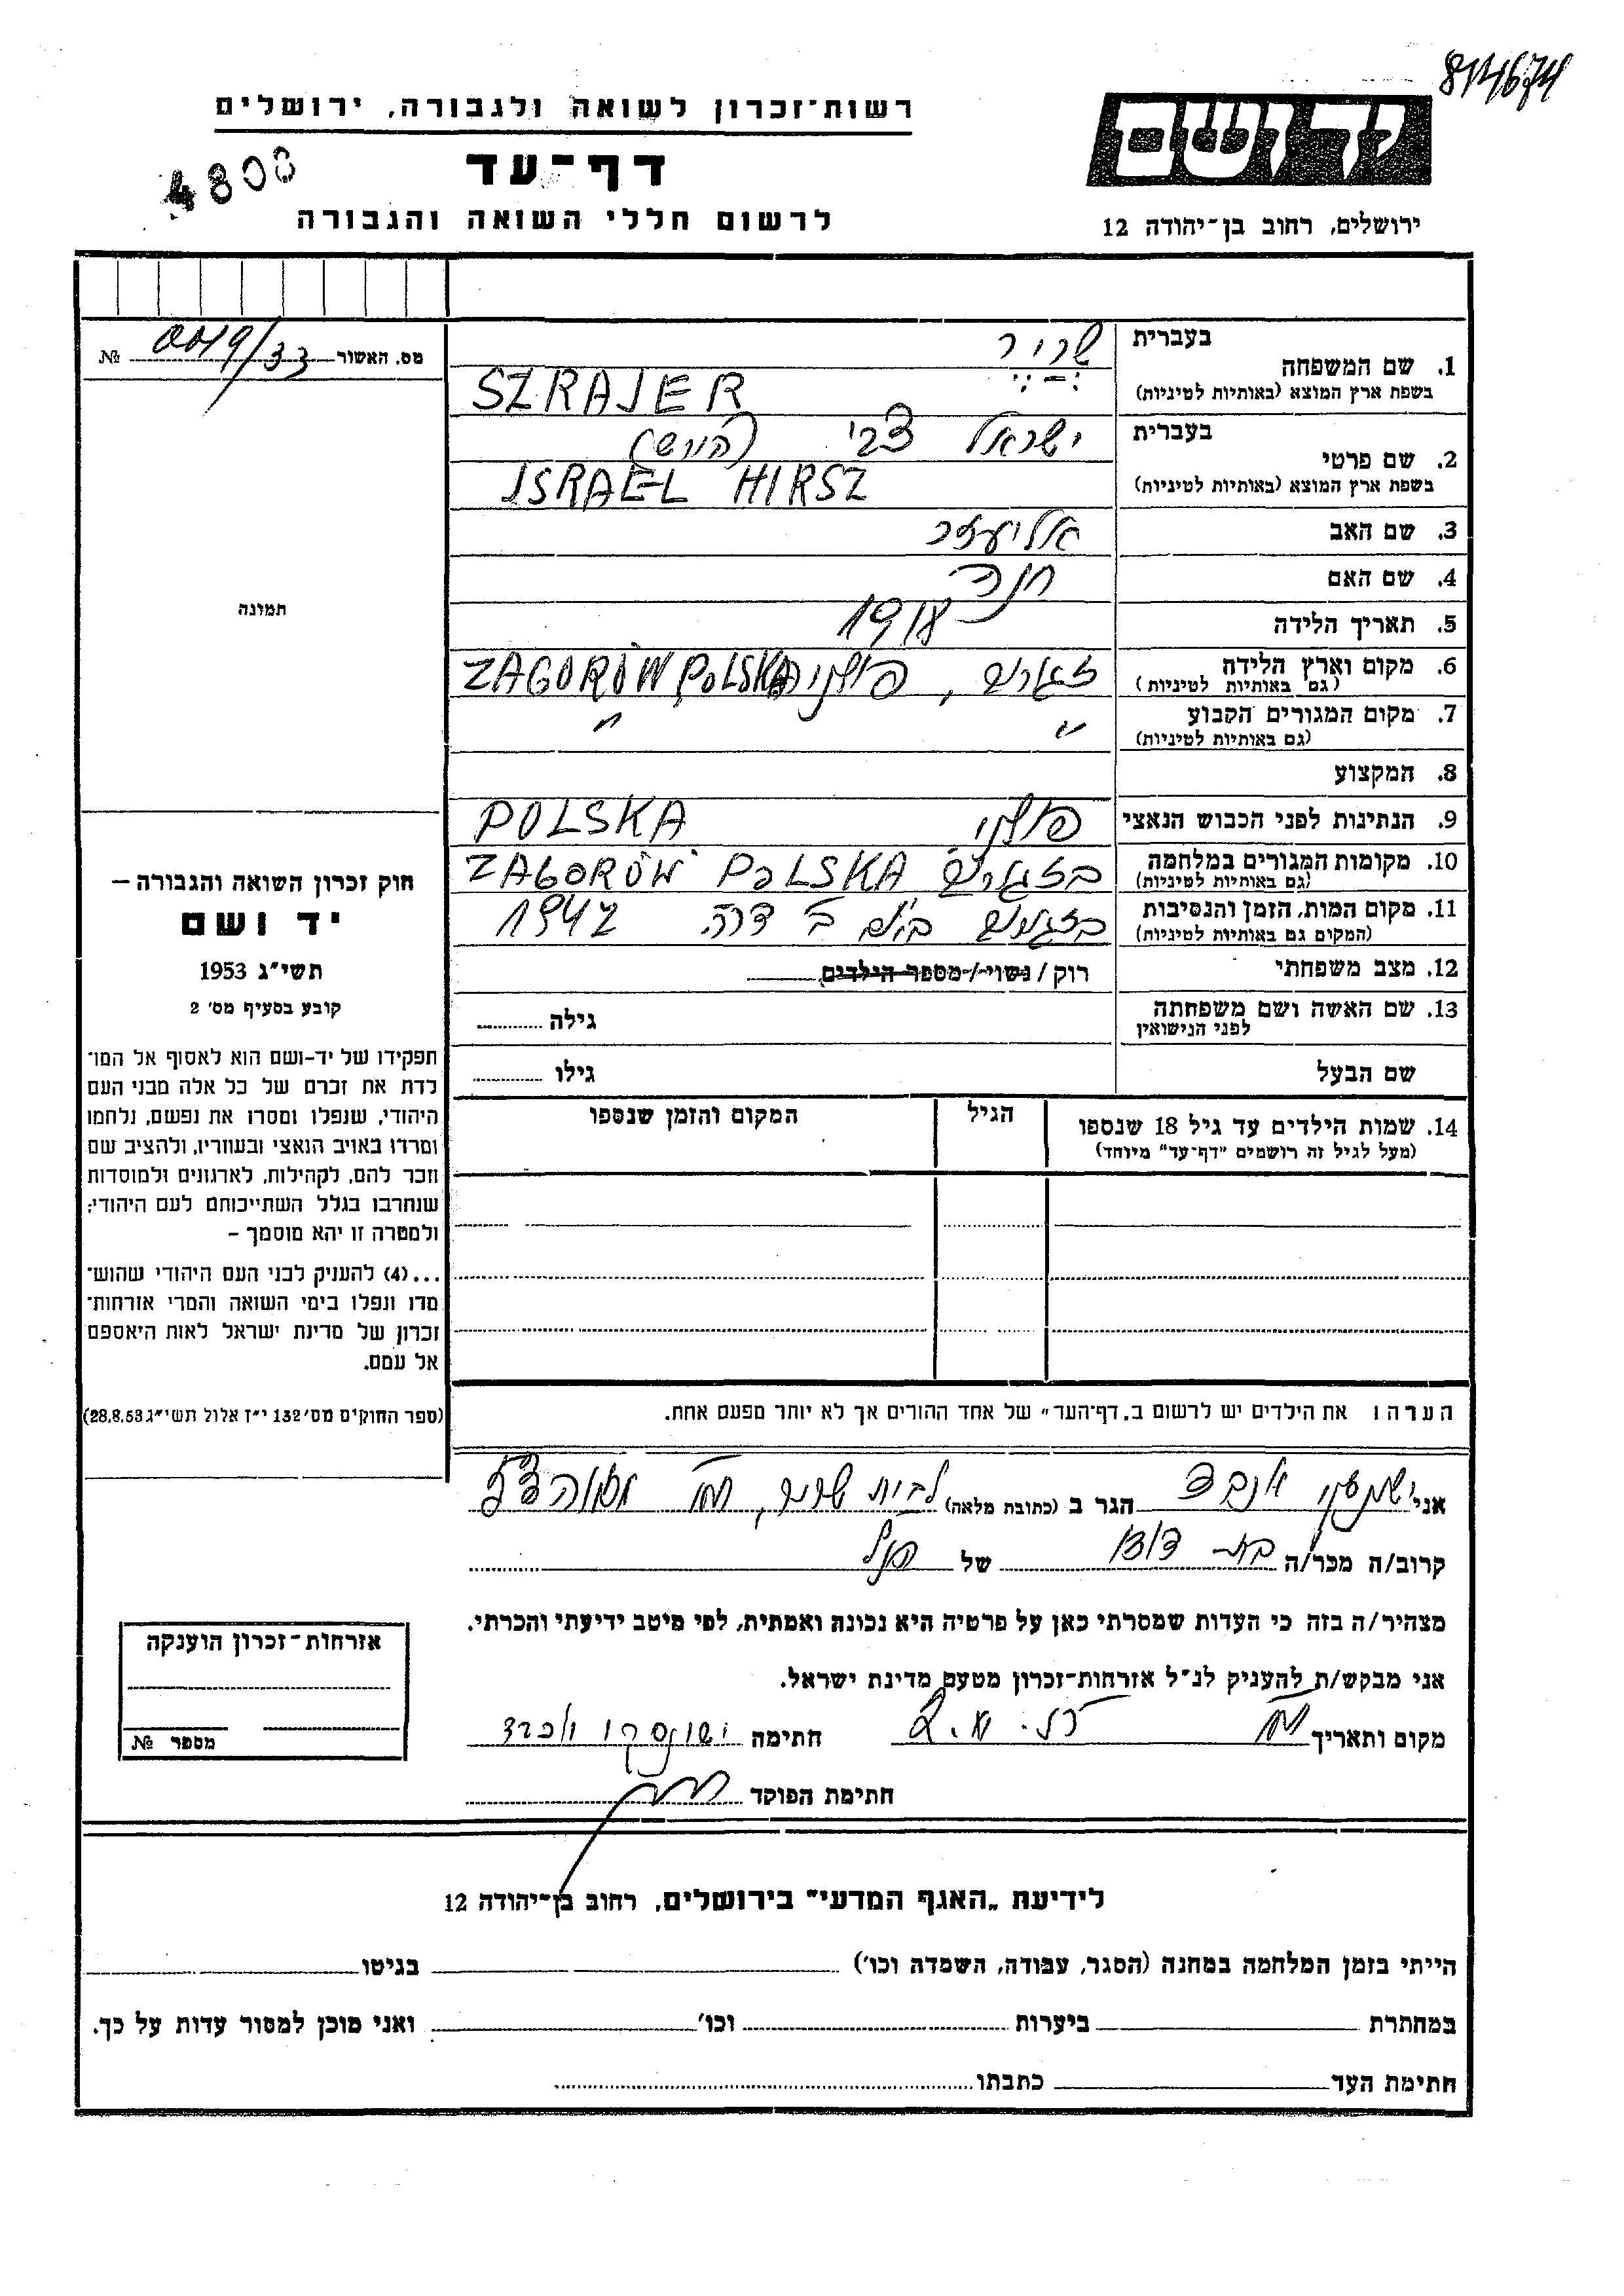 רשות־זכרון לשואה ולגבורה, ירושלים
דף־עד
לרשום חללי השואה והגבורה
4808
814674
יד ושם
ירושלים, רחוב בן־יהודה 12
מס. האשור № 0019/33
1. שם המשפחה
בעברית שריר
בשפת ארץ המוצא (באותיות לטיניות) SZRAJER
2. שם פרטי
בעברית ישראל צבי (הירש)
בשפת ארץ המוצא (באותיות לטיניות) ISRAEL HIRSZ
3. שם האב אליעזר
4. שם האם חנה
5. תאריך הלידה 1918
6. מקום וארץ הלידה זגורוב, פולניה ZAGORÓW POLSKA
(גם באותיות לטיניות)
7. מקום המגורים הקבוע " "
(גם באותיות לטיניות)
8. המקצוע
9. הנתינות לפני הכבוש הנאצי פולני POLSKA
10. מקומות המגורים במלחמה בזגורוב ZAGORÓW POLSKA
(גם באותיות לטיניות)
11. מקום המות, הזמן והנסיבות 1942
(המקום גם באותיות לטיניות)
12. מצב משפחתי רוק / נשוי / מספר הילדים
13. שם האשה ושם משפחתה גילה
לפני הנישואין
שם הבעל גילו
14. שמות הילדים עד גיל 18 שנספו הגיל המקום והזמן שנספו
(מעל לגיל זה רושמים "דף־עד" מיוחד)
הערה: את הילדים יש לרשום ב„דף־העד" של אחד ההורים אך לא יותר מפעם אחת.
תמונה
חוק זכרון השואה והגבורה –
יד ושם
תשי״ג 1953
קובע בסעיף מס׳ 2
תפקידו של יד-ושם הוא לאסוף אל המו־
לדת את זכרם של כל אלה מבני העם
היהודי, שנפלו ומסרו את נפשם, נלחמו
ומרדו באויב הנאצי ובעוזריו, ולהציב שם
וזכר להם, לקהילות, לארגונים ולמוסדות
שנחרבו בגלל השתייכותם לעם היהודי;
ולמטרה זו יהא מוסמך –
...(4) להעניק לבני העם היהודי שהוש־
מדו ונפלו בימי השואה והמרי אזרחות־
זכרון של מדינת ישראל לאות היאספם
אל עמם.
(ספר החוקים מס׳ 132 י״ז אלול תשי״ג 28.8.53)
אני הגר ב (כתובת מלאה) לבית שריר,
קרוב/ה מכר/ה בת דוד של הנ״ל
מצהיר/ה בזה כי העדות שמסרתי כאן על פרטיה היא נכונה ואמתית, לפי מיטב ידיעתי והכרתי.
אני מבקש/ת להעניק לנ״ל אזרחות-זכרון מטעם מדינת ישראל.
מקום ותאריך חתימה
חתימת הפוקד
אזרחות־זכרון הוענקה
מספר №
לידיעת „האגף המדעי" בירושלים, רחוב בן־יהודה 12
הייתי בזמן המלחמה במחנה (הסגר, עבודה, השמדה וכו׳) בגיטו
במחתרת ביערות וכו׳ ואני מוכן למסור עדות על כך.
חתימת העד כתבתו